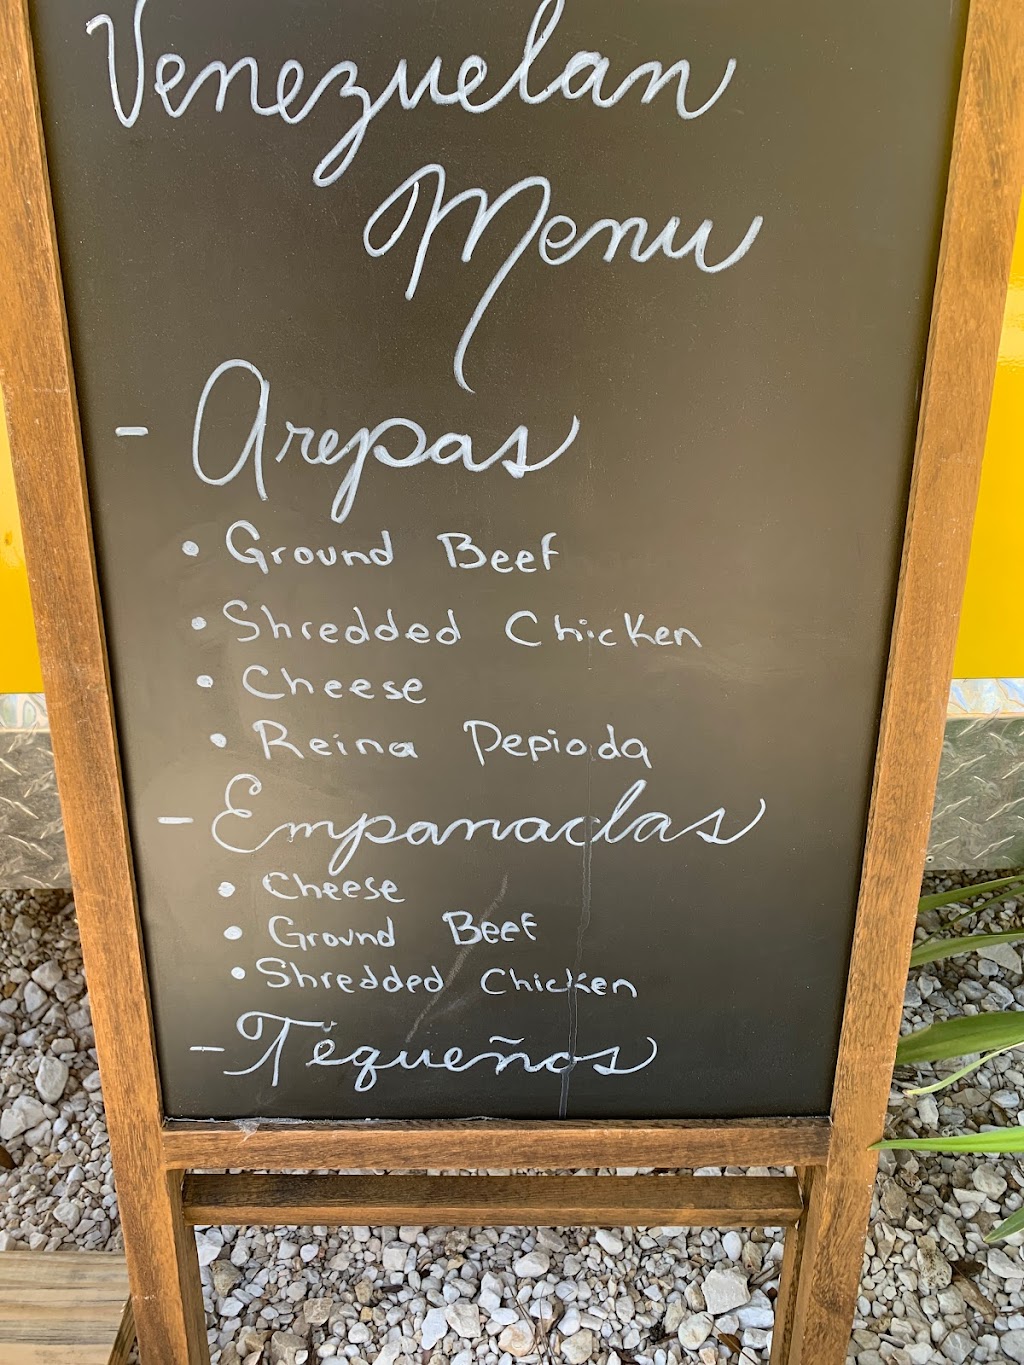 Venezuelan
Menu
- Arepas
• Ground Beef
• Shredded Chicken
• Cheese
• Reina Pepioda
- Empanadas
• Cheese
• Ground Beef
• Shredded Chicken
- Tequeños